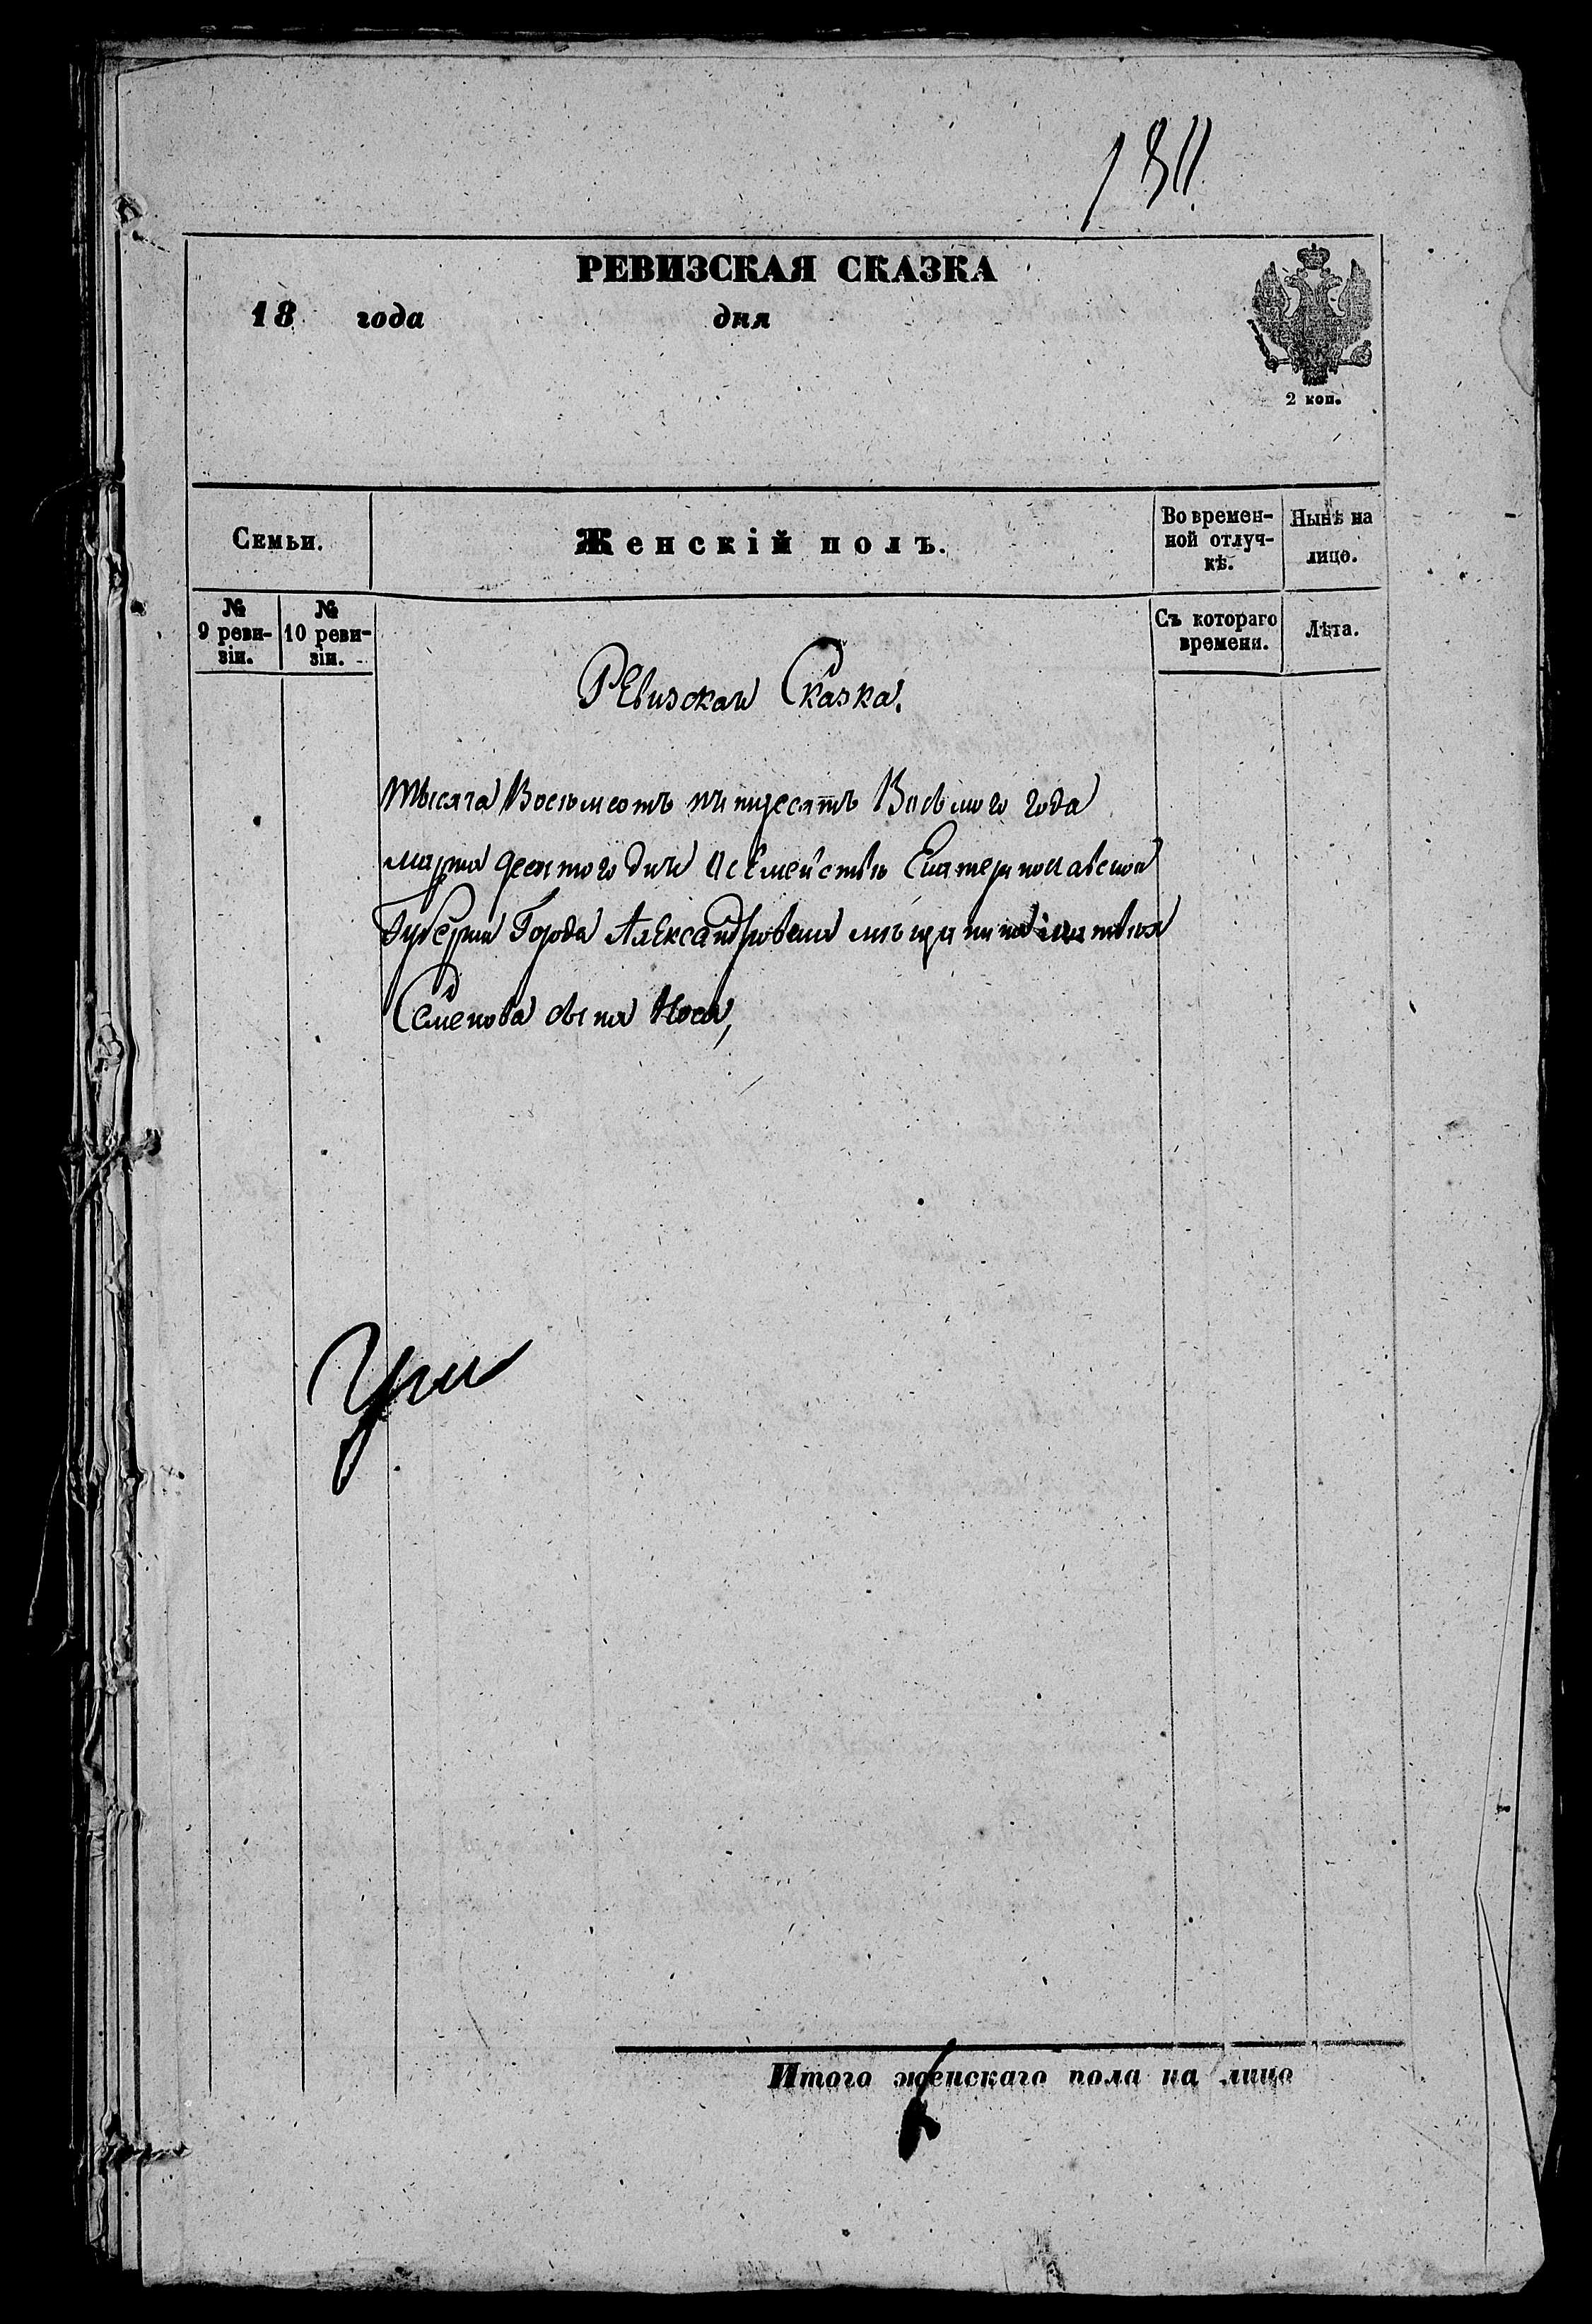 1811
РЕВИЗСКАЯ СКАЗКА
18 года дня
2 коп.
Семьи.
Женскій полъ.
Во времен-
ной отлуч-
кѣ.
Нынѣ на
лицо.
№
9 реви-
зіи.
№
10 реви-
зіи.
Съ котораго
времени.
Лѣта.
Ревизская Сказка.
Тысяча Восемсотъ пятидесятъ Восьмого года
марта десятого дня о семействѣ Екатеринославской
Губернии Города Александровска мѣщанина Матвѣя
Семенова сына Носа,
Итого женскаго пола на лицо